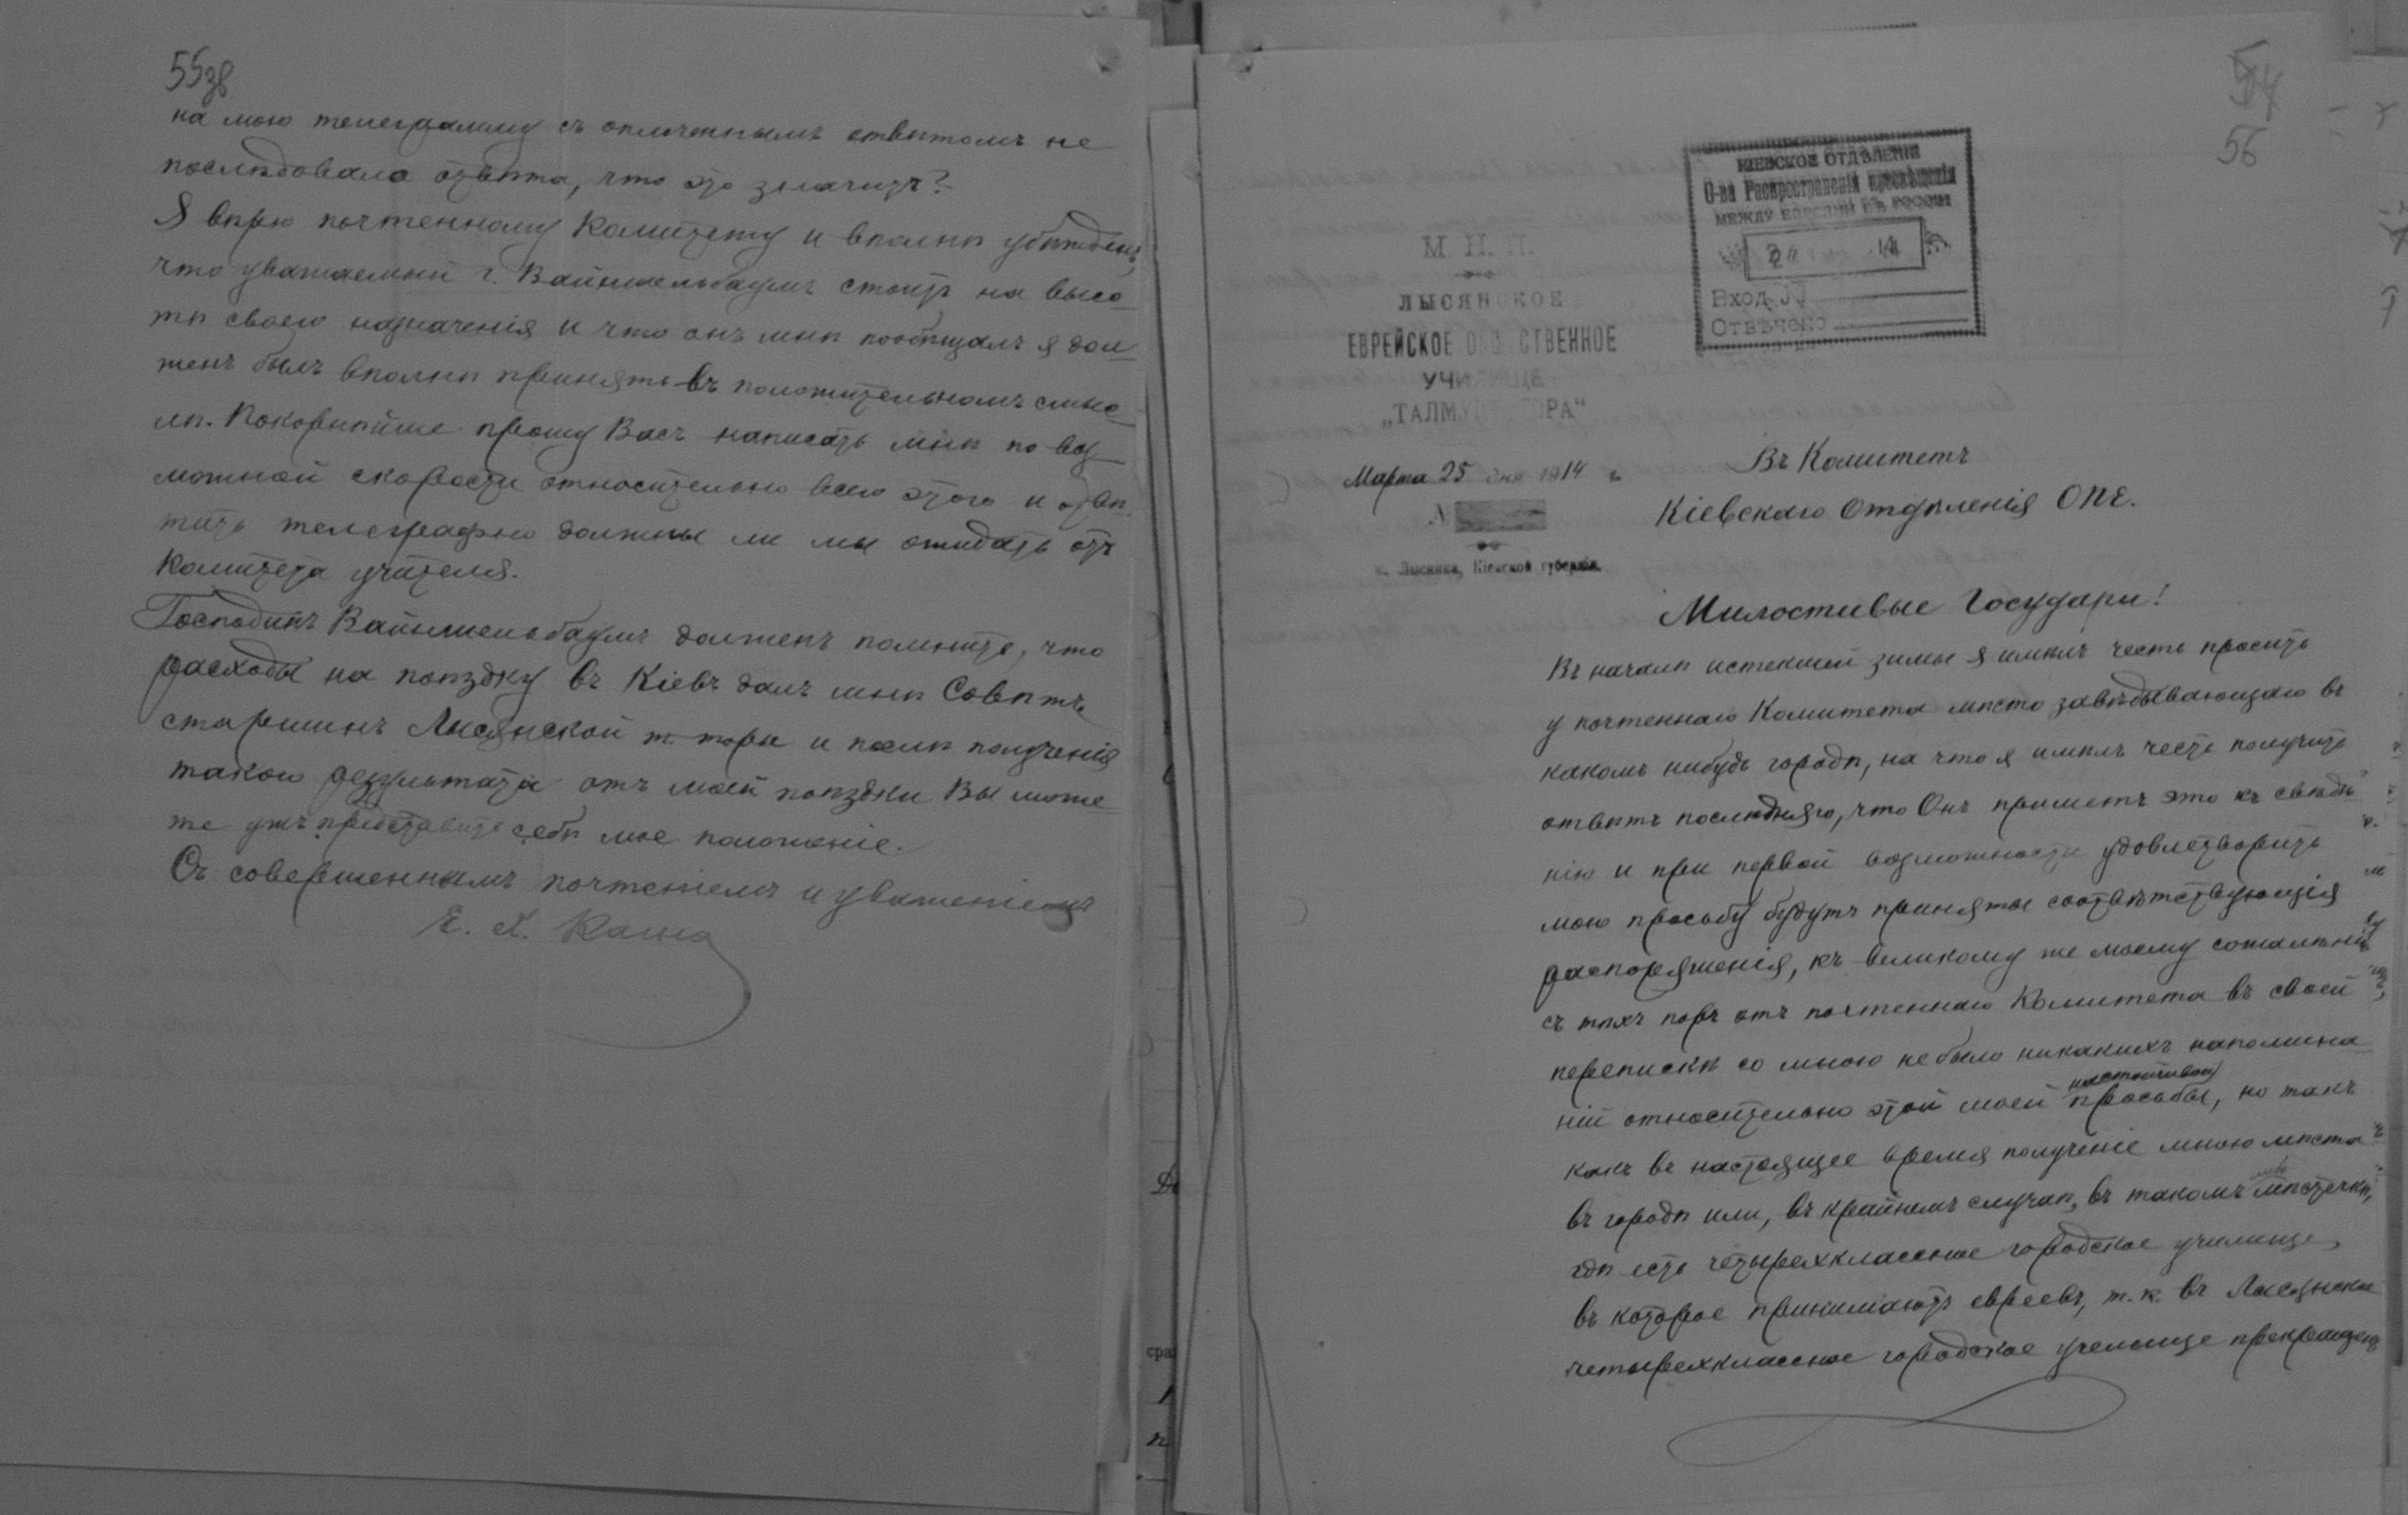 55зв
на мою телеграмму съ оплоченнымъ отвѣтомъ не
послѣдовало отвѣта, что это значитъ?
Я вѣрю почтенному Комитету и вполнѣ убѣжденъ,
что уважаемый г. Вайншельбаумъ стоитъ на высо
тѣ своего назначенія и что онъ мнѣ пообѣщалъ я дол
женъ былъ вполнѣ принять въ положительномъ смыс
лѣ. Покорнѣйше прошу Васъ написать мнѣ по воз
можной скорости относительно всего этого и отвѣ
тить телеграфно должны ли мы ожидать отъ
Комитета учителя.
Господинъ Вайншельбаумъ долженъ помнить, что
расходы на поѣздку въ Кіевъ далъ мнѣ Совѣтъ
старшинъ Лысянской т. торы и послѣ полученія
такого результата отъ моей поѣздки Вы може
те ужъ представить себѣ мое положеніе.
Съ совершеннымъ почтеніемъ и уваженіемъ
54
56
КІЕВСКОЕ ОТДѢЛЕНІЕ
О-ва Распространенія просвѣщенія
МЕЖДУ ЕВРЕЯМИ ВЪ РОССІИ
Вход. №
Отвѣчено
М. Н. П.
ЛЫСЯНСКОЕ
ЕВРЕЙСКОЕ ОБЩЕСТВЕННОЕ
УЧИЛИЩЕ
„ТАЛМУДЪ-ТОРА“
Марта 25 дня 1914 г.
№
м. Лысянка, Кіевской губерніи.
Въ Комитетъ
Кіевскаго Отдѣленія ОПЕ.
Милостивые Государи!
Въ началѣ истекшей зимы я имѣлъ честь просить
у почтеннаго Комитета мѣсто завѣдывающаго въ
какомъ нибудь городѣ, на что я имѣлъ честь получить
отвѣтъ послѣдняго, что Онъ приметъ это къ свѣдѣ
нію и при первой возможности удовлетворить
мою просьбу будутъ приняты соотвѣтствующія
распоряженія, къ великому же моему сожалѣнію
съ тѣхъ поръ отъ почтеннаго Комитета въ своей
перепискѣ со мною не было никакихъ напомина
ній относительно этой моей настойчивой просьбы, но такъ
какъ въ настоящее время полученіе мною мѣста
въ городѣ или, въ крайнемъ случаѣ, въ такомъ мѣстечкѣ,
гдѣ есть четырехклассное городское училище,
въ которое принимаютъ евреевъ, т. к. въ Лысянское
четырехклассное городское училище прекращенъ